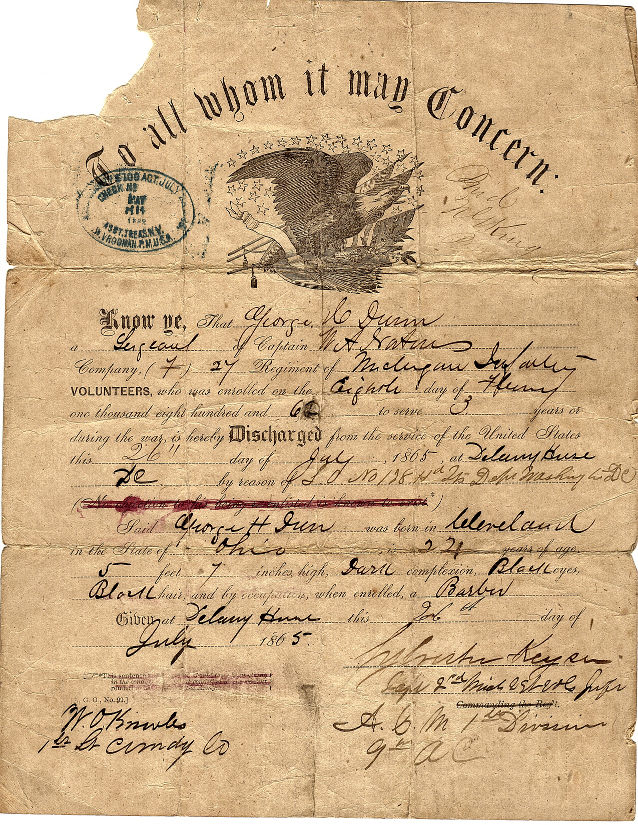 To all whom it may Concern:
CHECK No
MAY
ASST. TREAS. N.Y.
VROOMAN. P.M.U.S.A.
Know ye, That George H Dunn
a Sergeant of Captain W A
Company, ( F ) 27 Regiment of Infantry
VOLUNTEERS, who was enrolled on the Eighth day of
one thousand eight hundred and 62 to serve 3 years or
during the war, is hereby Discharged from the service of the United States
this 26" day of July, 1865, at Delany House
DC by reason of S O No 178 Dept Washington DC
Said George H Dunn was born in Cleveland
in the State of Ohio, is 22 years of age,
5 feet 7 inches high, Dark complexion, Black eyes,
Black hair, and by occupation, when enrolled, a Barber
Given at Delany House this 26th day of
July 1865.
Sylvester Keyser
Capt 2nd Mich
Commanding the Reg't.
A. C. M 1st Division
9th A C
*This sentence
G. O., No. 91.)
W O Knowles
1st Lt Comdg Co